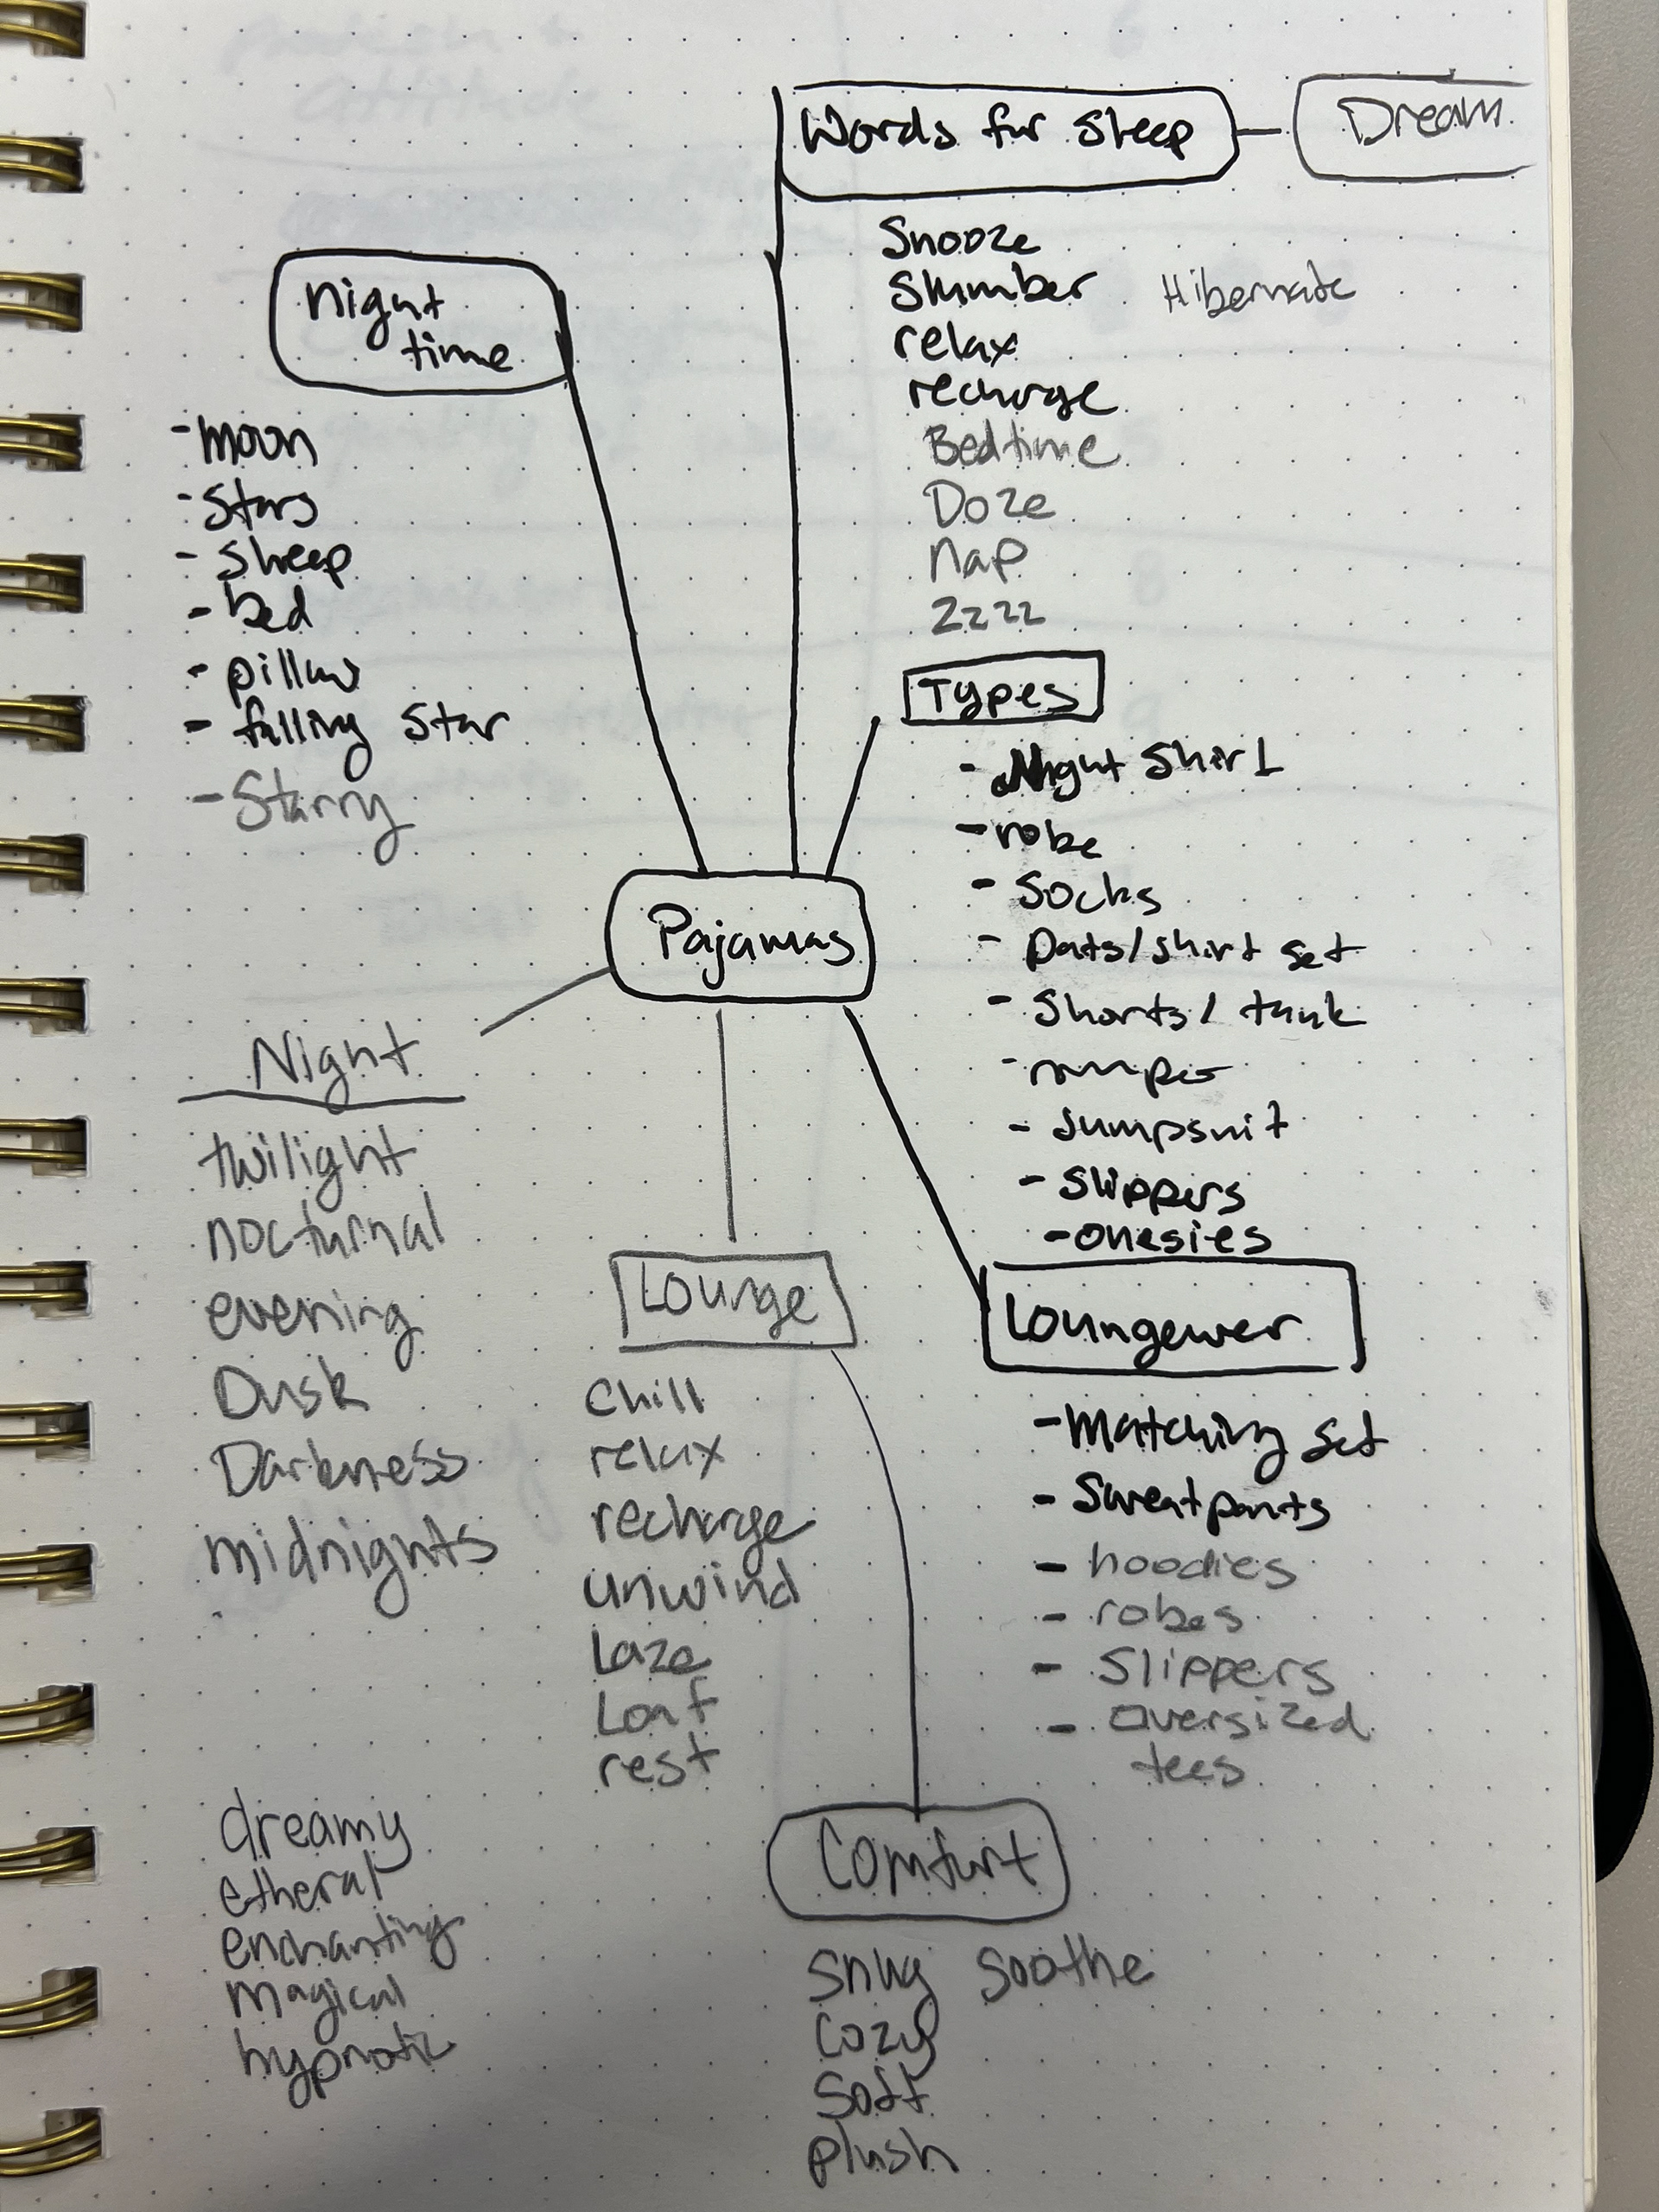 Words for Sleep
Dream
Snooze
Slumber
Hibernate
relax
recharge
Bedtime
Doze
Nap
Zzzz
Night
time
- moon
- Stars
- Sheep
- bed
- pillow
- falling Star
- Starry
Types
- Night Shirt
- robe
- Socks
- Pats/shirt set
- Shorts/ tank
- romper
- Jumpsuit
- Slippers
- onesies
Pajamas
Night
twilight
nocturnal
evening
Dusk
Darkness
midnights
Lounge
Chill
relax
recharge
unwind
Laze
Loaf
rest
Loungewer
- Matching Set
- Sweatpants
- hoodies
- robes
- Slippers
- oversized
tees
dreamy
etheral
enchanting
magical
hypnotic
Comfort
Snug Soothe
Cozy
Soft
plush